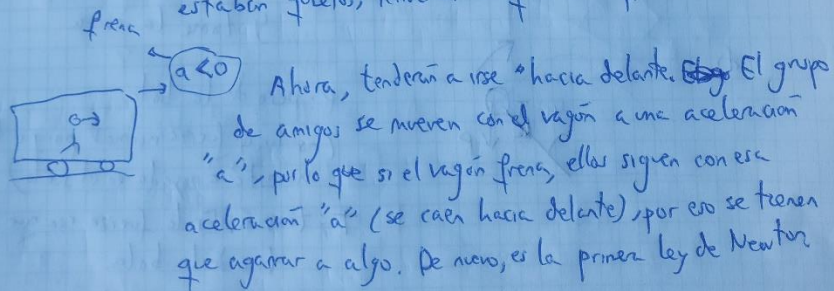 estaban
frena
a<0
Ahora, tenderán a irse "hacia delante. El grupo
de amigos se mueven con el vagón a una aceleración
"a", por lo que si el vagón frena, ellos siguen con esa
aceleración "a" (se caen hacia delante), por eso se tienen
que agarrar a algo. De nuevo, es la primera ley de Newton